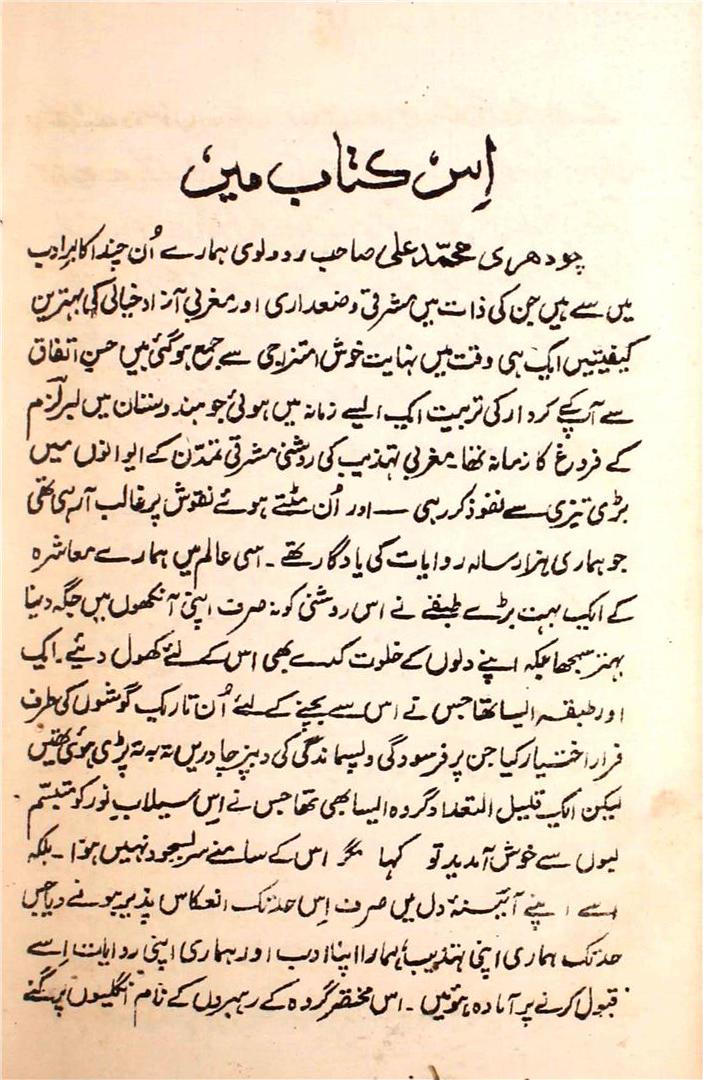 اِس کتاب میں
چودھری محمّد علی صاحب ردولوی ہمارے اُن چند اکابرِ ادب
میں سے ہیں جن کی ذات میں مشرقی وضعداری اور مغربی آزاد خیالی کی بہترین
کیفیتیں ایک ہی وقت میں نہایت خوش امتزاجی سے جمع ہوگئی ہیں حسنِ اتفاق
سے آپ کے کردار کی تربیت ایک ایسے زمانہ میں ہوئی جو ہندوستان میں لبرلزم
کے فروغ کا زمانہ تھا۔ مغربی تہذیب کی روشنی مشرقی تمدّن کے ایوانوں میں
بڑی تیزی سے نفوذ کر رہی — اور اُن مٹتے ہوئے نقوش پر غالب آرہی تھی
جو ہماری ہزار سالہ روایات کی یادگار تھے ۔ اسی عالم میں ہمارے معاشرہ
کے ایک بہت بڑے طبقے نے اس روشنی کو نہ صرف اپنی آنکھوں میں جگہ دینا
بہتر سمجھا بلکہ اپنے دلوں کے خلوت کدے بھی اس کے لئے کھول دئیے ۔ ایک
اور طبقہ ایسا تھا جس نے اس سے بچنے کے لئے اُن تاریک گوشوں کی طرف
فرار اختیار کیا جن پر فرسودگی و پسماندگی کی دبیز چادریں تہ بہ تہ پڑی ہوئی تھیں
لیکن ایک قلیل التعداد گروہ ایسا بھی تھا جس نے اِس سیلابِ نور کو متبسّم
لبوں سے خوش آمدید تو کہا مگر اس کے سامنے سر بسجود نہیں ہوا ۔ بلکہ
اسے اپنے آئینۂ دل میں صرف اِس حد تک انعکاس پذیر ہونے دیا جس
حد تک ہماری اپنی تہذیب، ہمارا اپنا ادب اور ہماری اپنی روایات اِسے
قبول کرنے پر آمادہ ہوئیں ۔ اس مختصر گروہ کے رہبروں کے نام انگلیوں پر گنے